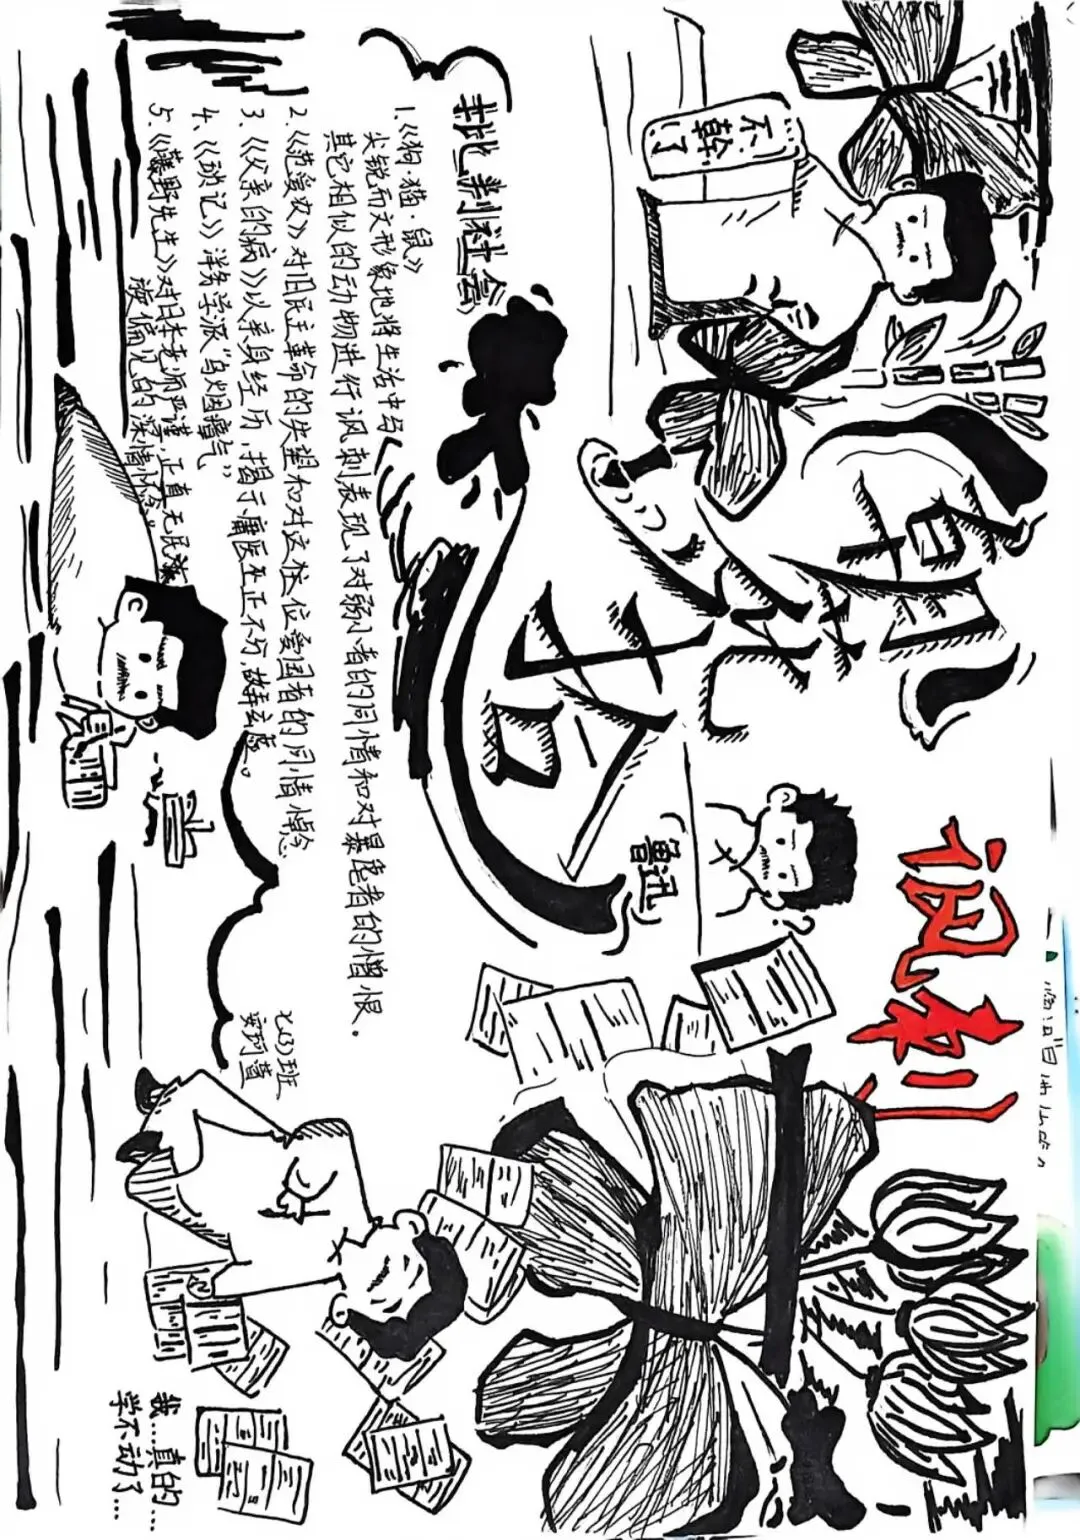 朝花夕拾
讽刺
鲁迅
不
幹了
批判社会
1.《狗·猫·鼠》
尖锐而又形象地将生活中与
其它相似的动物进行讽刺表现了对弱小者的同情和对暴虐者的憎恨。
2.《范爱农》对旧民主革命的失望和对这位爱国者的同情悼念
3.《父亲的病》以亲身经历,揭示庸医
4.《琐记》洋务学派“乌烟瘴气”
5.《藤野先生》对日本老师严谨,正直无民族
偏见的深情怀念
七(3)班
我...真的...
学不动了...